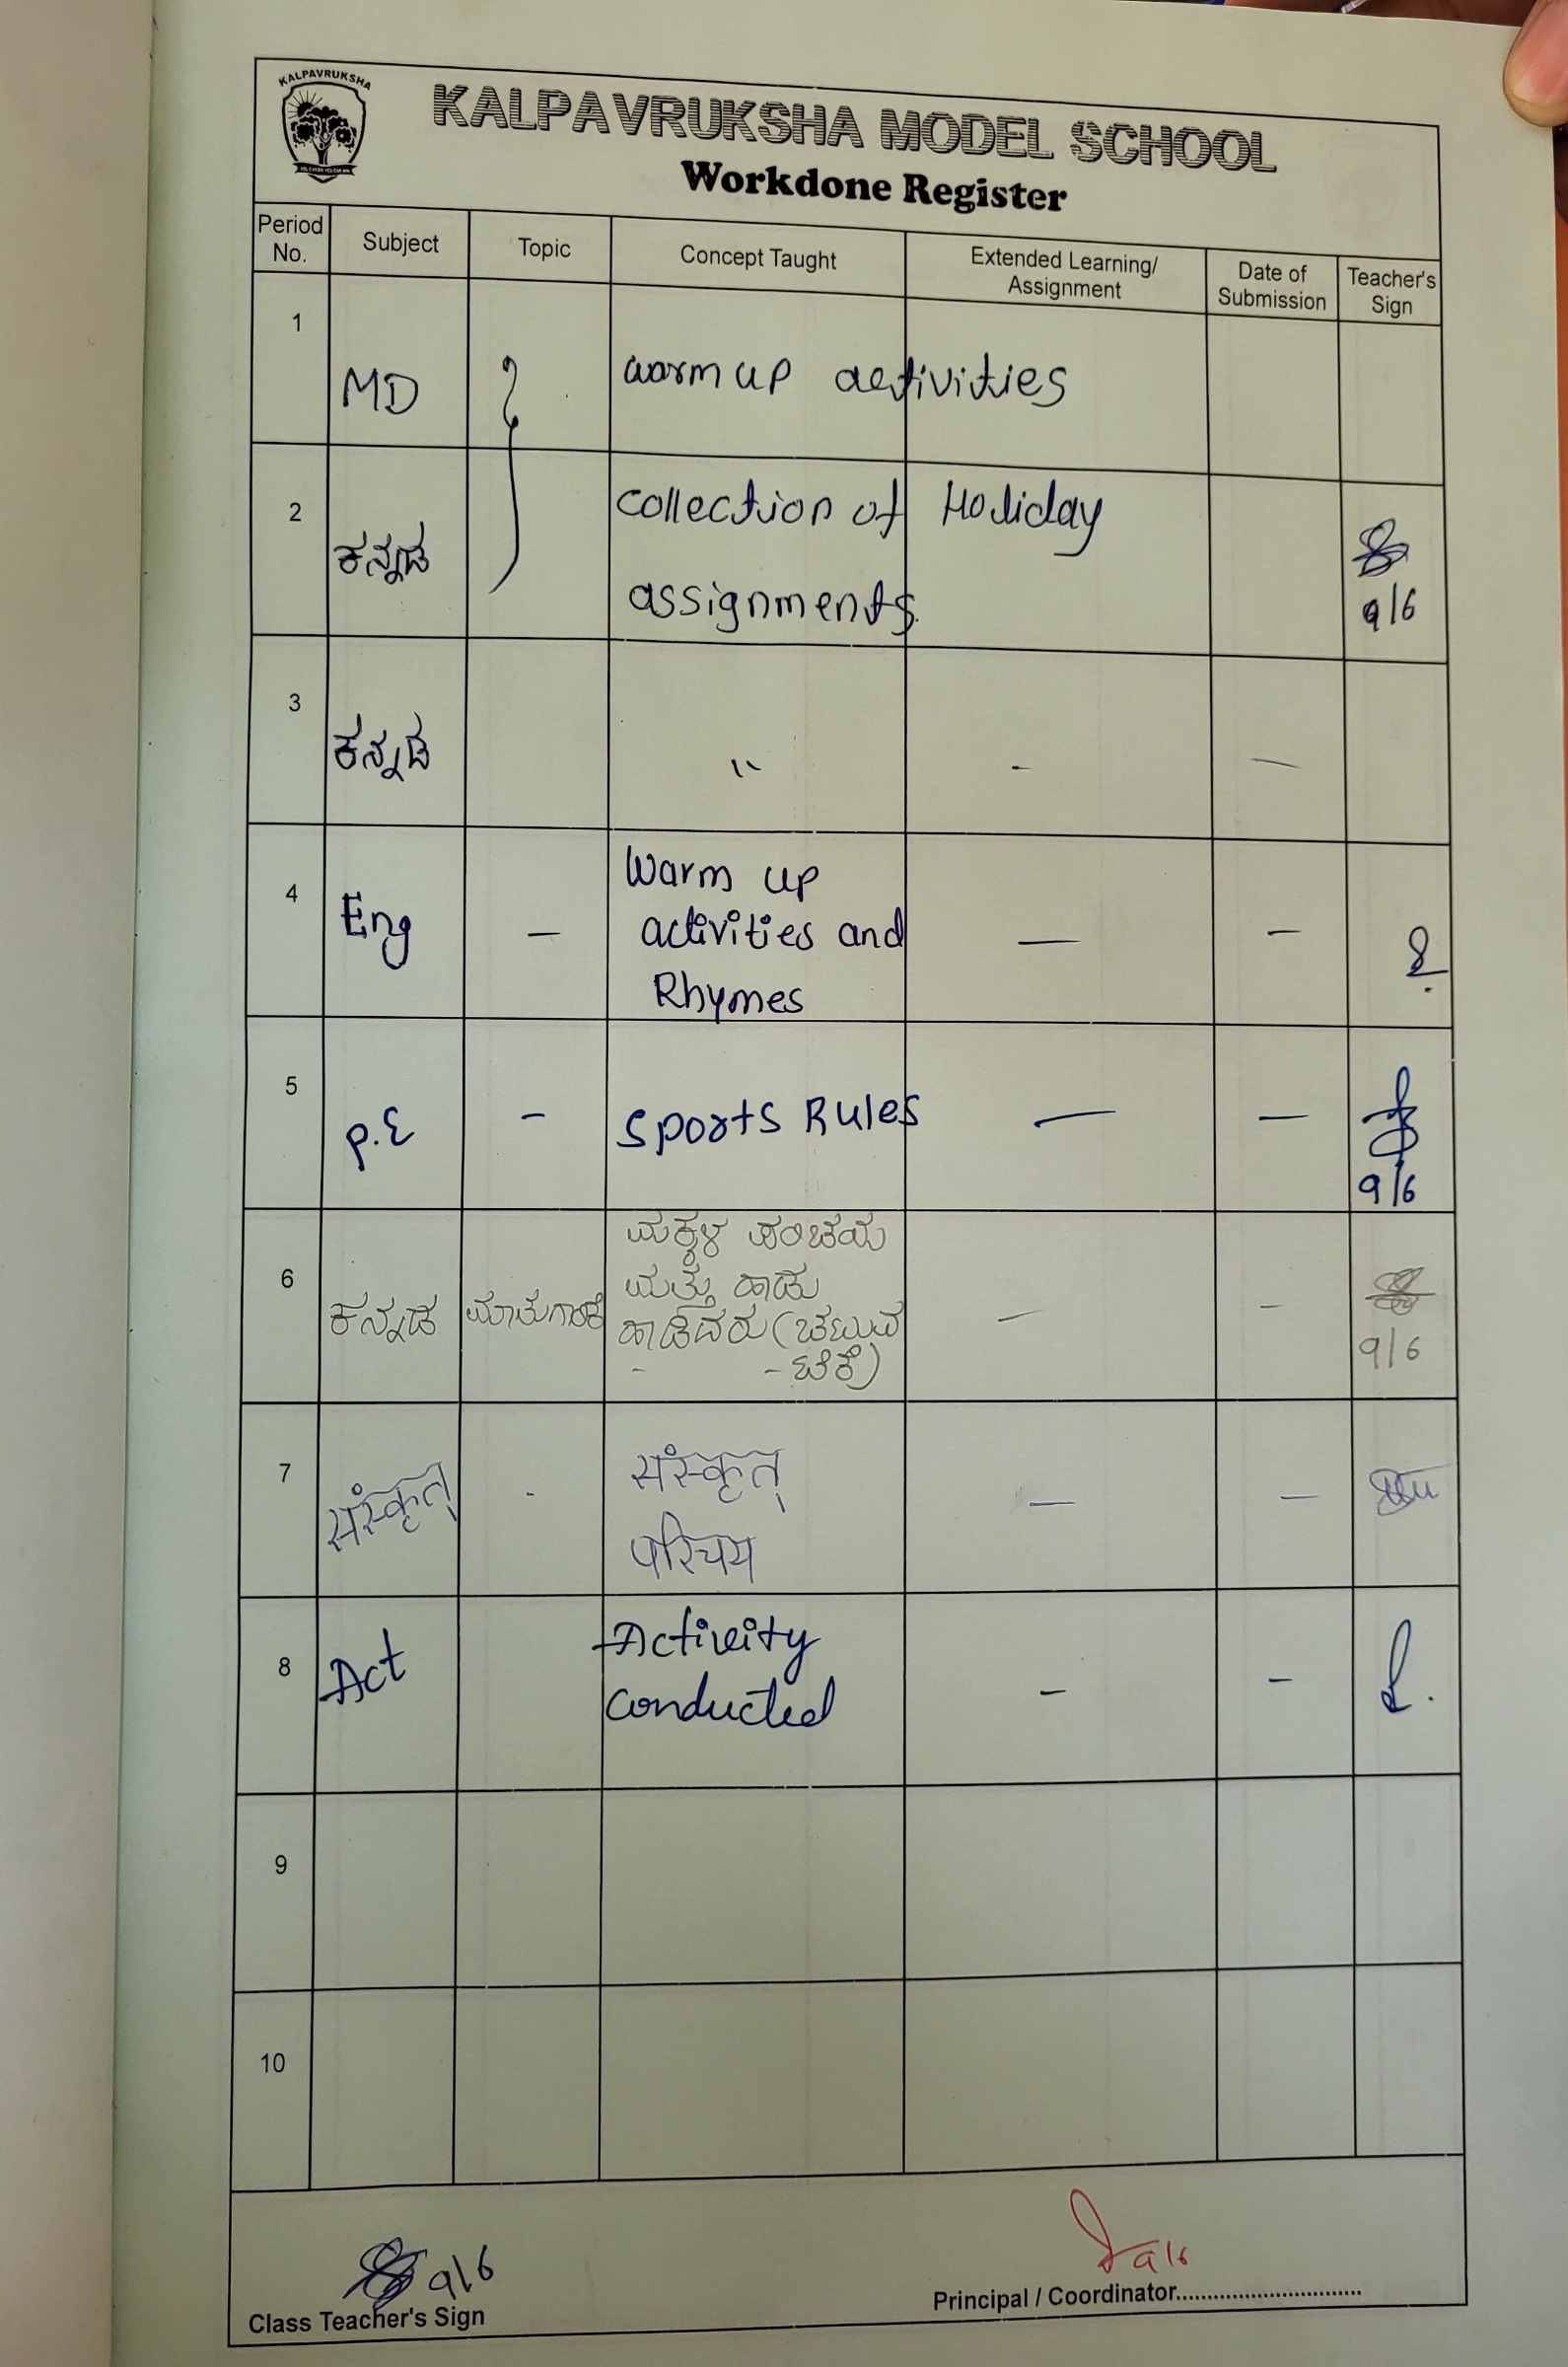 KALPAVRUKSHA
KALPAVRUKSHA MODEL SCHOOL
Workdone Register
Period No. Subject Topic Concept Taught Extended Learning/ Assignment Date of Submission Teacher's Sign
1 MD warm up activities
2 ಕನ್ನಡ collection of Holiday
assignments.
9/6
3 ಕನ್ನಡ " - -
4 Eng - Warm up
activities and
Rhymes - -
5 P.E - Sports Rules - -
9/6
6 ಕನ್ನಡ ಮಾತುಗಾರಿಕೆ ಮಕ್ಕಳ ಪರಿಚಯ
ಮತ್ತು ಹಾಡು
ಹಾಡಿದರು (ಚಟುವ
- - ಟಿಕೆ) - -
9/6
7 संस्कृत् . संस्कृत्
परिचय - -
8 Act Activity
conducted - -
9
10
9/6
Class Teacher's Sign
9/6
Principal / Coordinator..............................